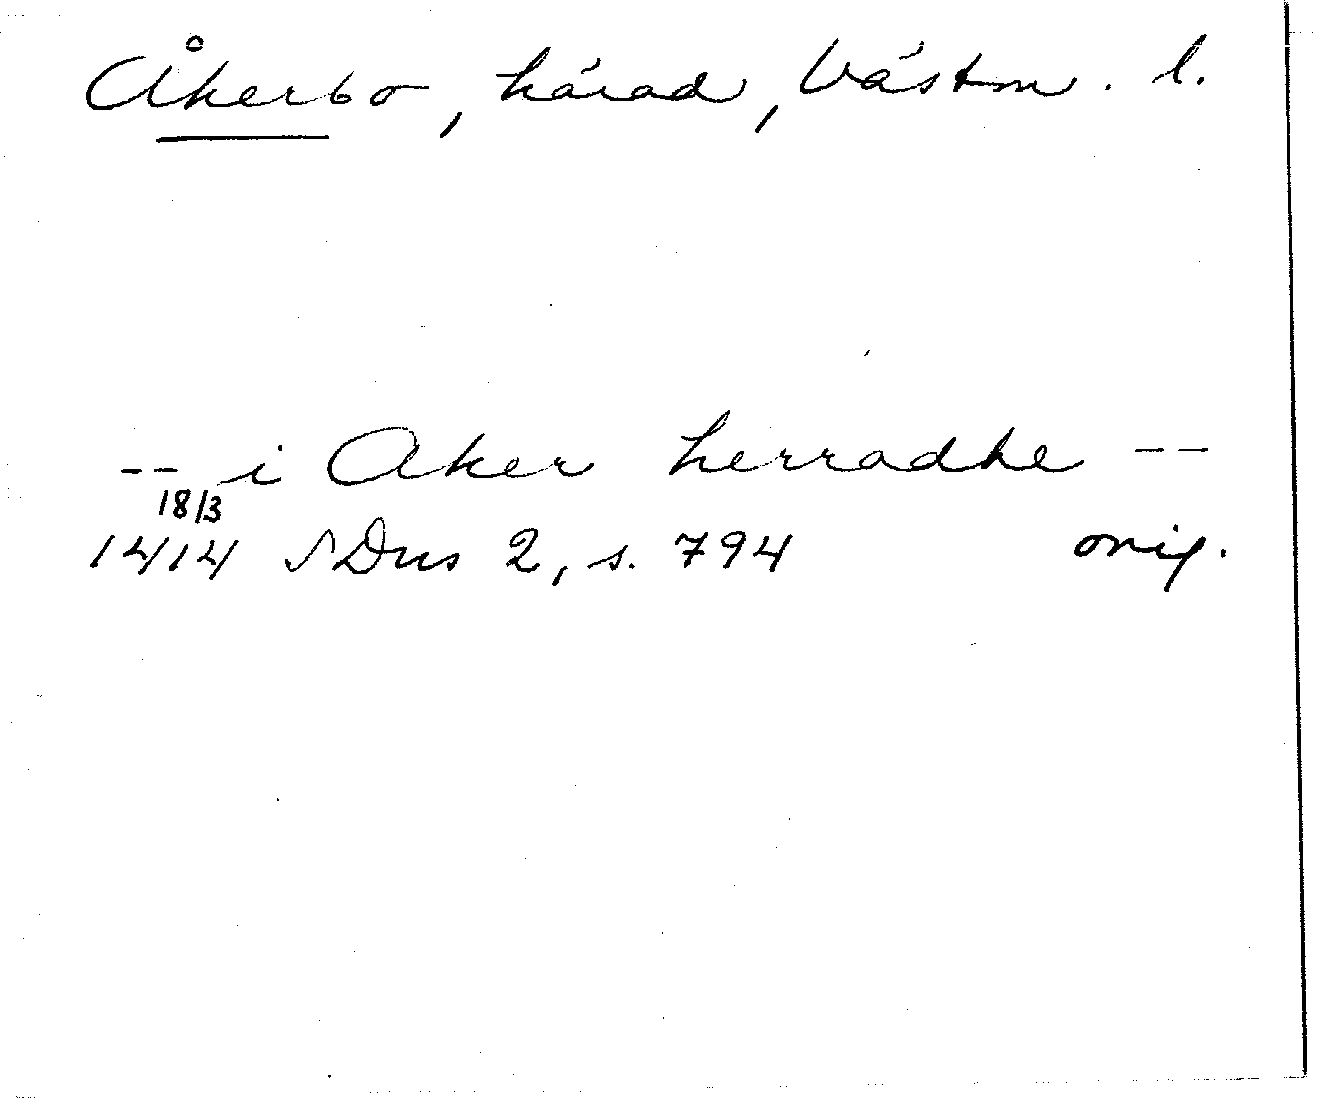 Åkerbo, härad, Västm. l.
-- i Aker herradhe --
18/3
1414 SDns 2, s. 794 orig.